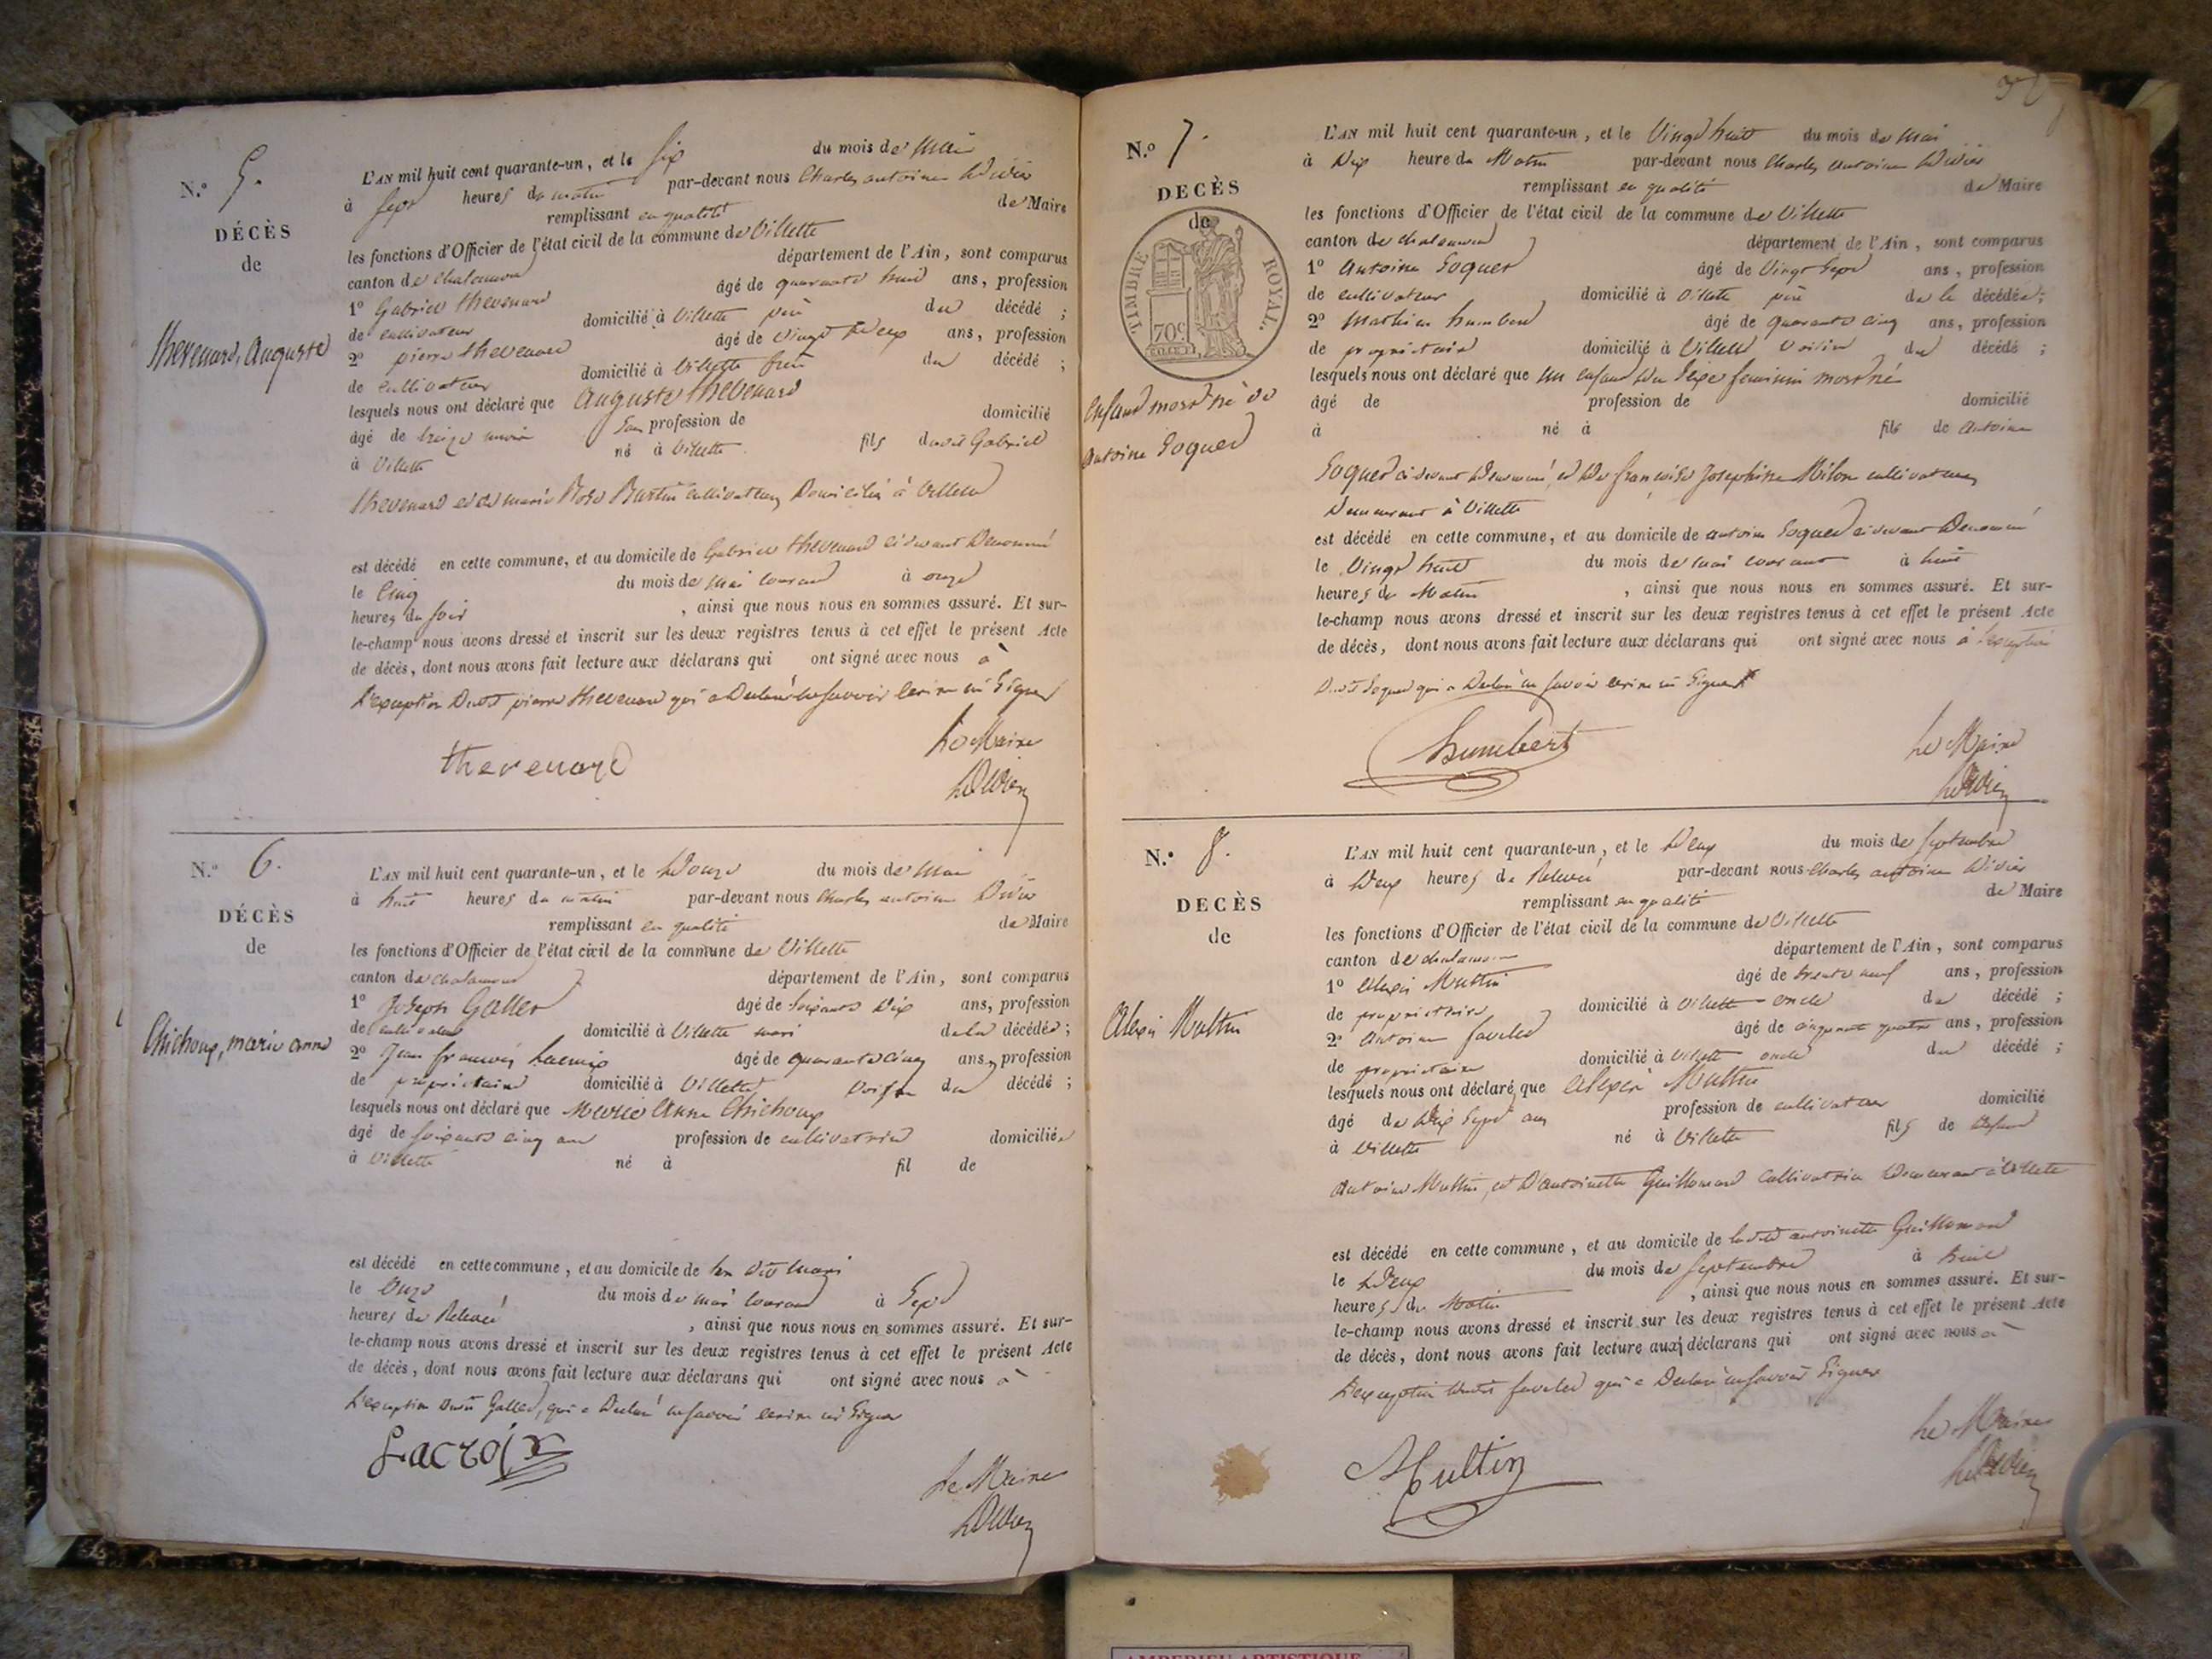 N.º 5.
DÉCÈS
de
Thevenard, Auguste
L'AN mil huit cent quarante-un, et le six du mois de Mai
à sept heures du matin par-devant nous Charles antoine Didier
remplissant en qualité de Maire
les fonctions d'Officier de l'état civil de la commune de Villette
canton de chalamont département de l'Ain, sont comparus
1º Gabriel thevenard âgé de quarante huit ans, profession
de cultivateur domicilié à Villette père du décédé ;
2º pierre thevenard âgé de vingt deux ans, profession
de cultivateur domicilié à Villette frère du décédé ;
lesquels nous ont déclaré que Auguste thevenard
âgé de treize mois sans profession de domicilié
à Villette né à Villette fils dudit Gabriel
thevenard et de marie Rose Burtin cultivateurs Domiciliés à Villette
est décédé en cette commune, et au domicile de Gabriel thevenard ci devant Denommé
le cinq du mois de mai courant à onze
heures du soir , ainsi que nous nous en sommes assuré. Et sur-
le-champ nous avons dressé et inscrit sur les deux registres tenus à cet effet le présent Acte
de décès, dont nous avons fait lecture aux déclarans qui ont signé avec nous à
l'exception Dudit pierre thevenard qui a Declaré ne savoir écrire ni Signer
thevenard
Le Maire
Didier
N.º 6.
DÉCÈS
de
Chichoux, marie anne
L'AN mil huit cent quarante-un, et le Douze du mois de Mai
à huit heures du matin par-devant nous Charles antoine Didier
remplissant en qualité de Maire
les fonctions d'Officier de l'état civil de la commune de Villette
canton de chalamont département de l'Ain, sont comparus
1º Joseph Gallet âgé de soixante Dix ans, profession
de cultivateur domicilié à Villette mari de la décédée ;
2º Jean françois Lacroix âgé de quarante cinq ans, profession
de propriétaire domicilié à Villette voisin du décédé ;
lesquels nous ont déclaré que Marie Anne Chichoux
âgé de soixante cinq ans profession de cultivatrice domiciliée
à Villette né à fil de
est décédé en cette commune, et au domicile de son dit mari
le onze du mois de mai courant à Sept
heures de Relevée , ainsi que nous nous en sommes assuré. Et sur-
le-champ nous avons dressé et inscrit sur les deux registres tenus à cet effet le présent Acte
de décès, dont nous avons fait lecture aux déclarans qui ont signé avec nous à
l'exception dudit Gallet, qui a Declaré ne savoir écrire ni Signer
Lacroix
Le Maire
Didier
N.º 7.
DECÈS
de
TIMBRE ROYAL.
70 c.
enfant mort né de
antoine Soquet
L'AN mil huit cent quarante-un, et le Vingt huit du mois de Mai
à Dix heure du Matin par-devant nous Charles antoine Didier
remplissant en qualité de Maire
les fonctions d'Officier de l'état civil de la commune de Villette
canton de chalamont département de l'Ain, sont comparus
1º Antoine Soquet âgé de Vingt Sept ans, profession
de cultivateur domicilié à Villette père de la décédée ;
2º Mathieu humbert âgé de quarante cinq ans, profession
de propriétaire domicilié à Villette voisin du décédé ;
lesquels nous ont déclaré que un enfant du Sexe feminin mort né
âgé de profession de domicilié
à né à fils de antoine
Soquet ci devant Denommé, et de françoise Josephine Milon cultivateurs
Demeurant à Villette
est décédé en cette commune, et au domicile de antoine Soquet ci devant Denommé
le Vingt huit du mois de mai courant à huit
heures du Matin , ainsi que nous nous en sommes assuré. Et sur-
le-champ nous avons dressé et inscrit sur les deux registres tenus à cet effet le présent Acte
de décès, dont nous avons fait lecture aux déclarans qui ont signé avec nous à l'exception
Dudit Soquet qui a Declaré ne savoir écrire ni Signer
humbert
Le Maire
Didier
N.º 8.
DECÈS
de
Alexis Multin
L'AN mil huit cent quarante-un, et le Deux du mois de septembre
à Deux heures de Relevée par-devant nous Charles antoine Didier
remplissant en qualité de Maire
les fonctions d'Officier de l'état civil de la commune de Villette
canton de chalamont département de l'Ain, sont comparus
1º Alexis Multin âgé de trente neuf ans, profession
de propriétaire domicilié à Villette oncle du décédé ;
2º Antoine favelet âgé de cinquante quatre ans, profession
de propriétaire domicilié à Villette oncle du décédé ;
lesquels nous ont déclaré que Alexis Multin
âgé de Dix Sept ans profession de cultivateur domicilié
à Villette né à Villette fils de defunt
Antoine Multin, et D'antoinette Guillomard cultivatrice Demeurant à Villette
est décédé en cette commune, et au domicile de ladite antoinette Guillomard
le Deux du mois de septembre à huit
heures du Matin , ainsi que nous nous en sommes assuré. Et sur-
le-champ nous avons dressé et inscrit sur les deux registres tenus à cet effet le présent Acte
de décès, dont nous avons fait lecture aux déclarans qui ont signé avec nous à
l'exception dudit favelet qui a Declaré ne savoir Signer
Multin
Le Maire
Didier
AMBERIEU ARTISTIQUE